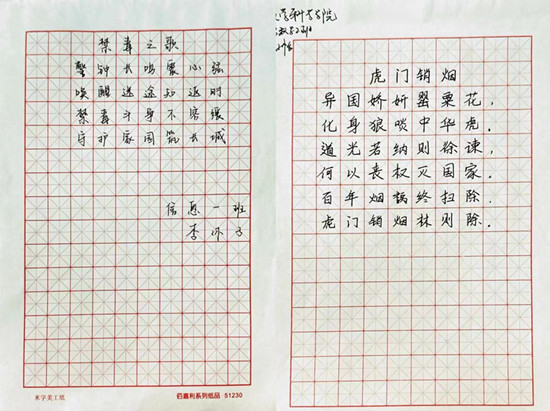 禁毒之歌
警钟长鸣震心弦
唤醒迷途知返时
禁毒斗争不容缓
守护家园筑长城
信息一班
李
米字美工纸
佰嘉利系列纸品 51230
学院
班
虎门销烟
异国娇妍罂粟花，
化身狼啖中华虎．
道光若纳则徐谏，
何以丧权灭国家．
百年烟祸终扫除．
虎门销烟林则除．